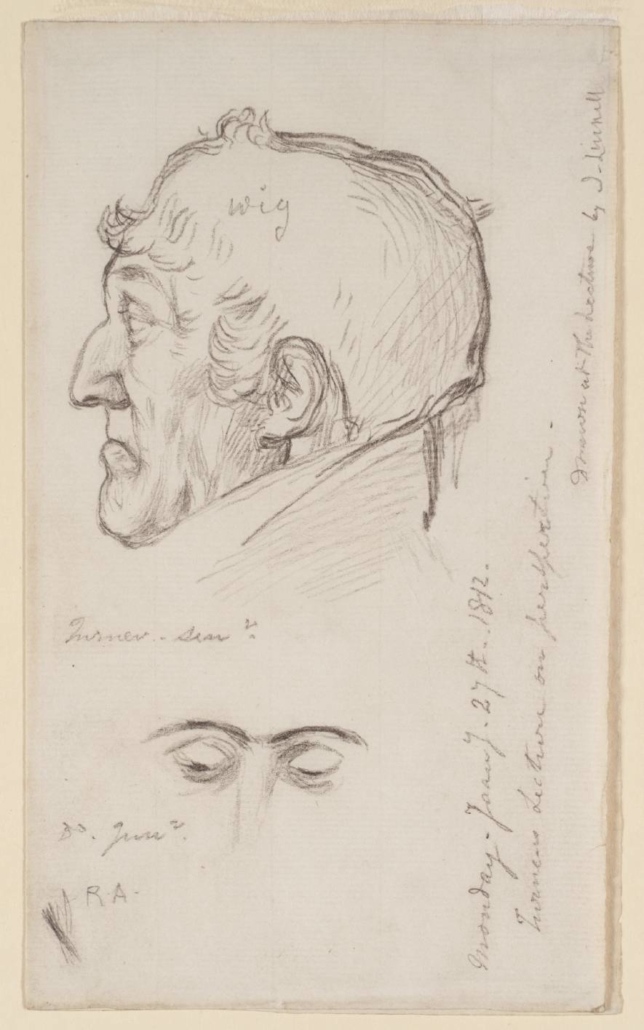 wig
Turner - Senr.
Do. Junr.
R.A.
Monday - Jany. 27th. 1812.
Turners Lecture on perspective -
Drawn at the Lecture by J. Linnell